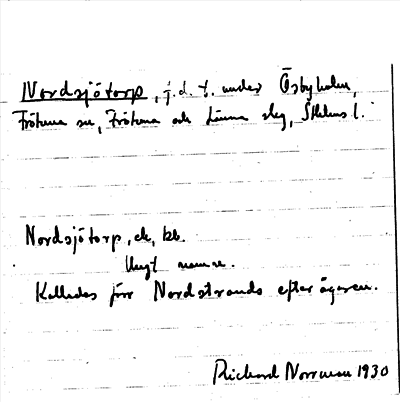 Nordsjötorp, j.d.t. under Össbyholm,
Frötuna sn, Frötuna och Länna skg, Sthlms l.
Nordsjötorp, ek, kb.
Ungt namn.
Kallades förr Nordstrands efter ägaren.
Richard Norrman 1930